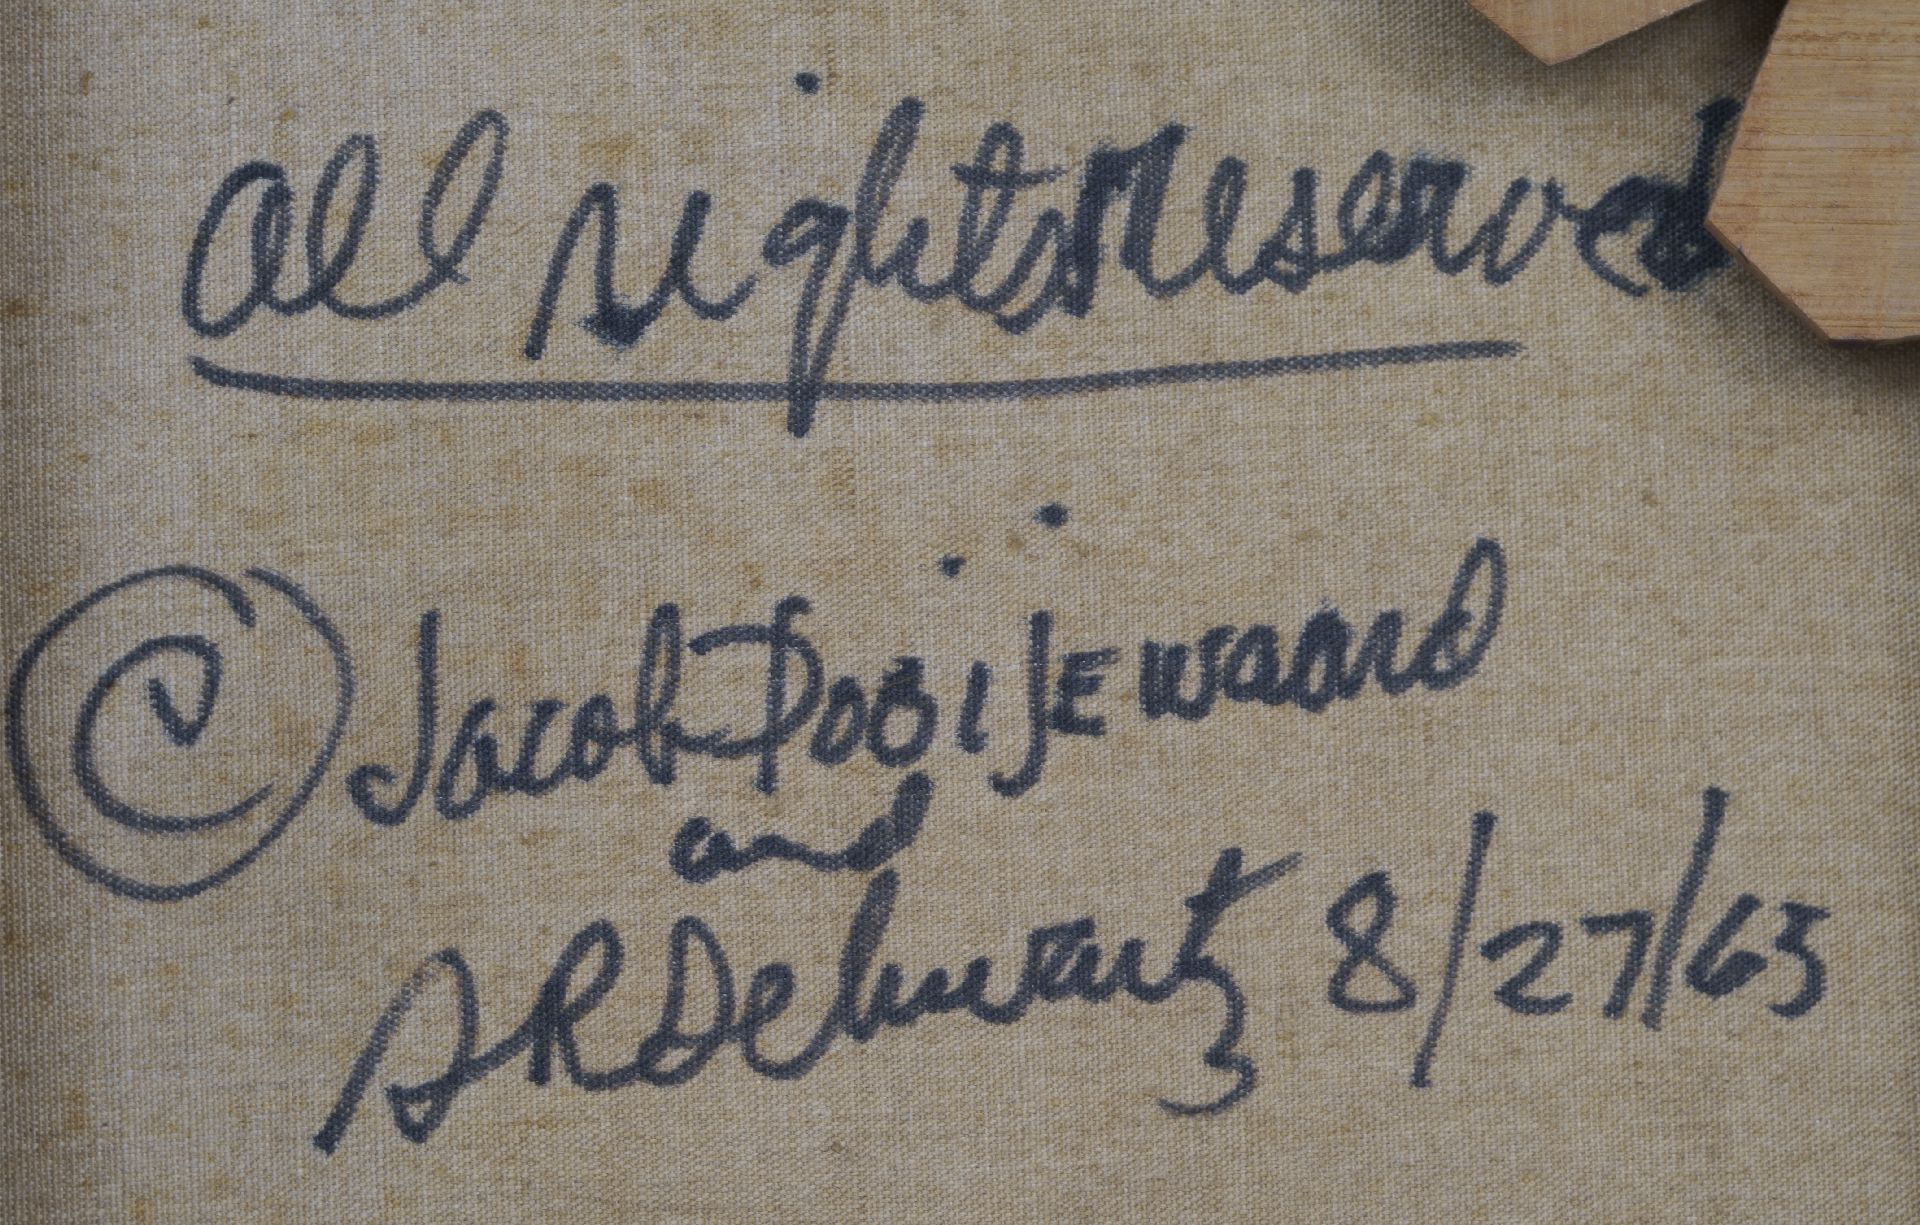 all rights reserved
© Jacob Pobijewaard
and
A R Schwartz 8/27/63